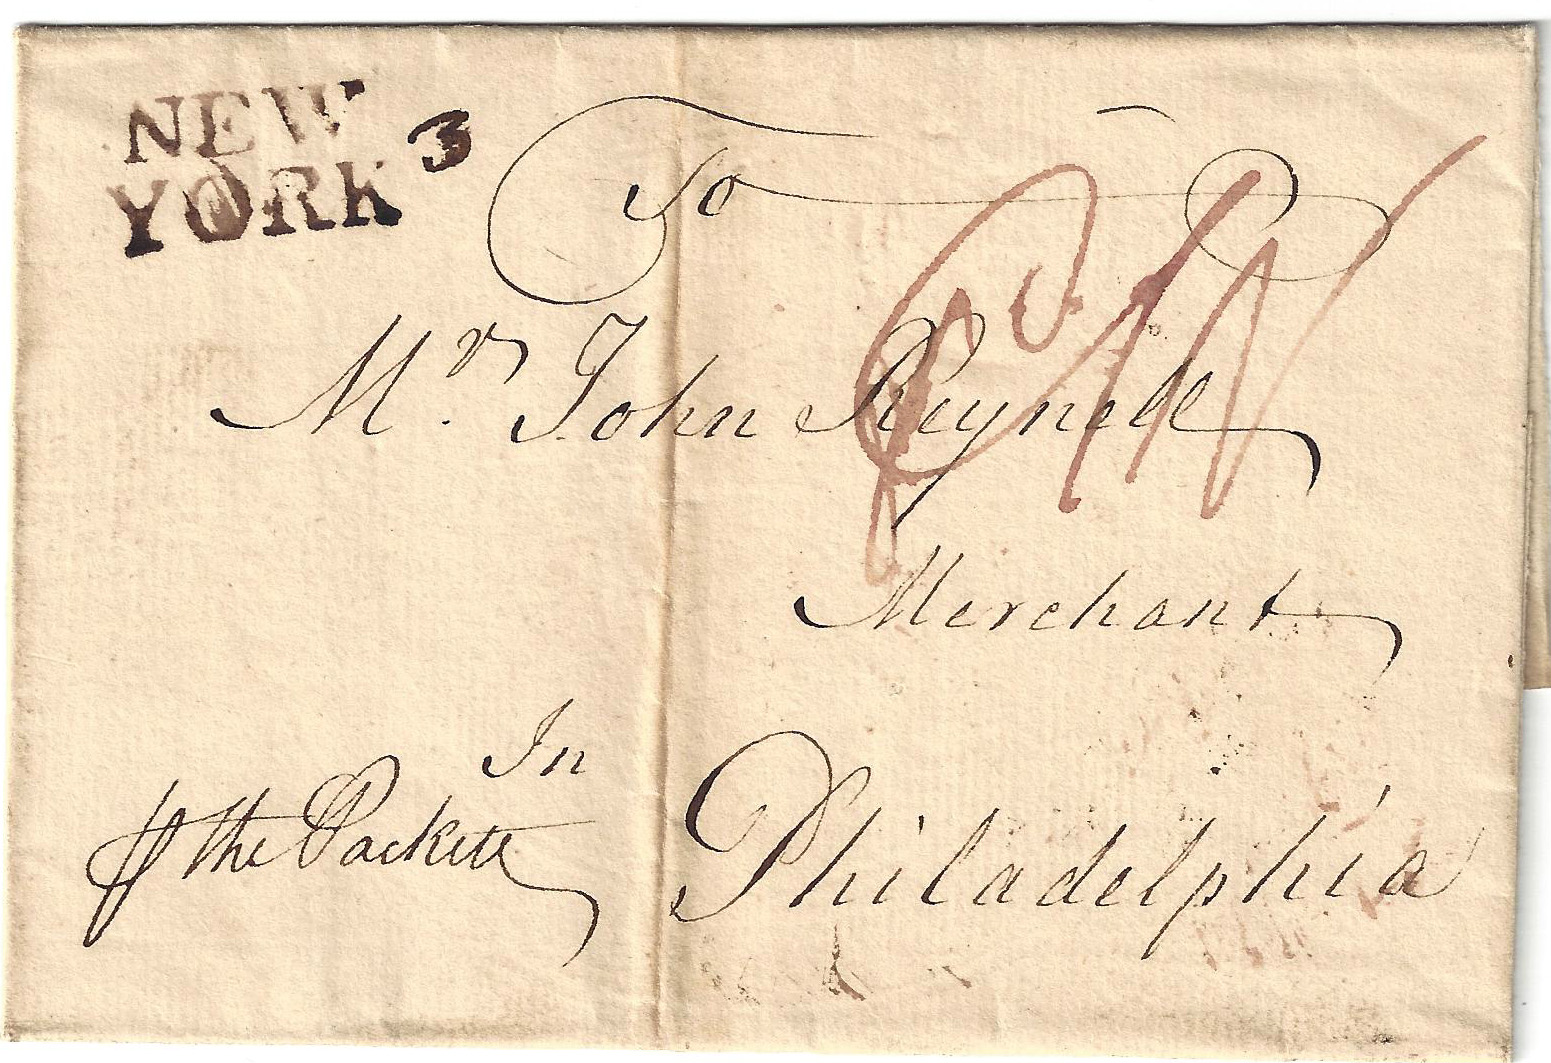 NEW
YORK 3
To
Mr. John Reynell
Merchant
In
the Packett
Philadelphia